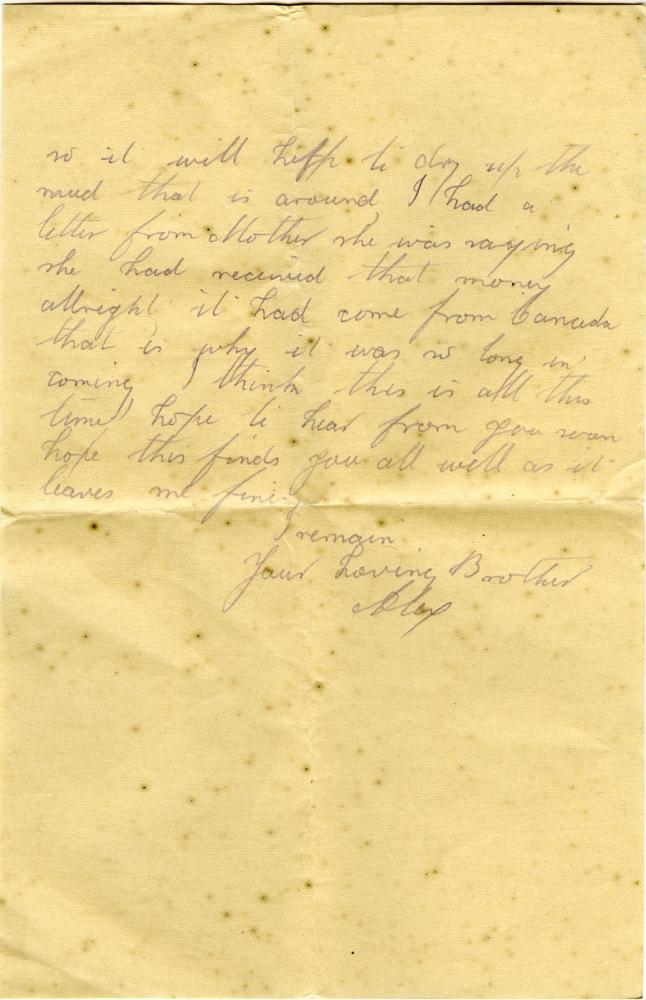 so it will help to dry up the
mud that is around, I had a
letter from Mother she was saying
she had received that money
allright it had come from Canada
that is why it was so long in
coming I think this is all this
time I hope to hear from you soon
hope this finds you all well as it
leaves me fine.
I remain
Your Loving Brother
Alex